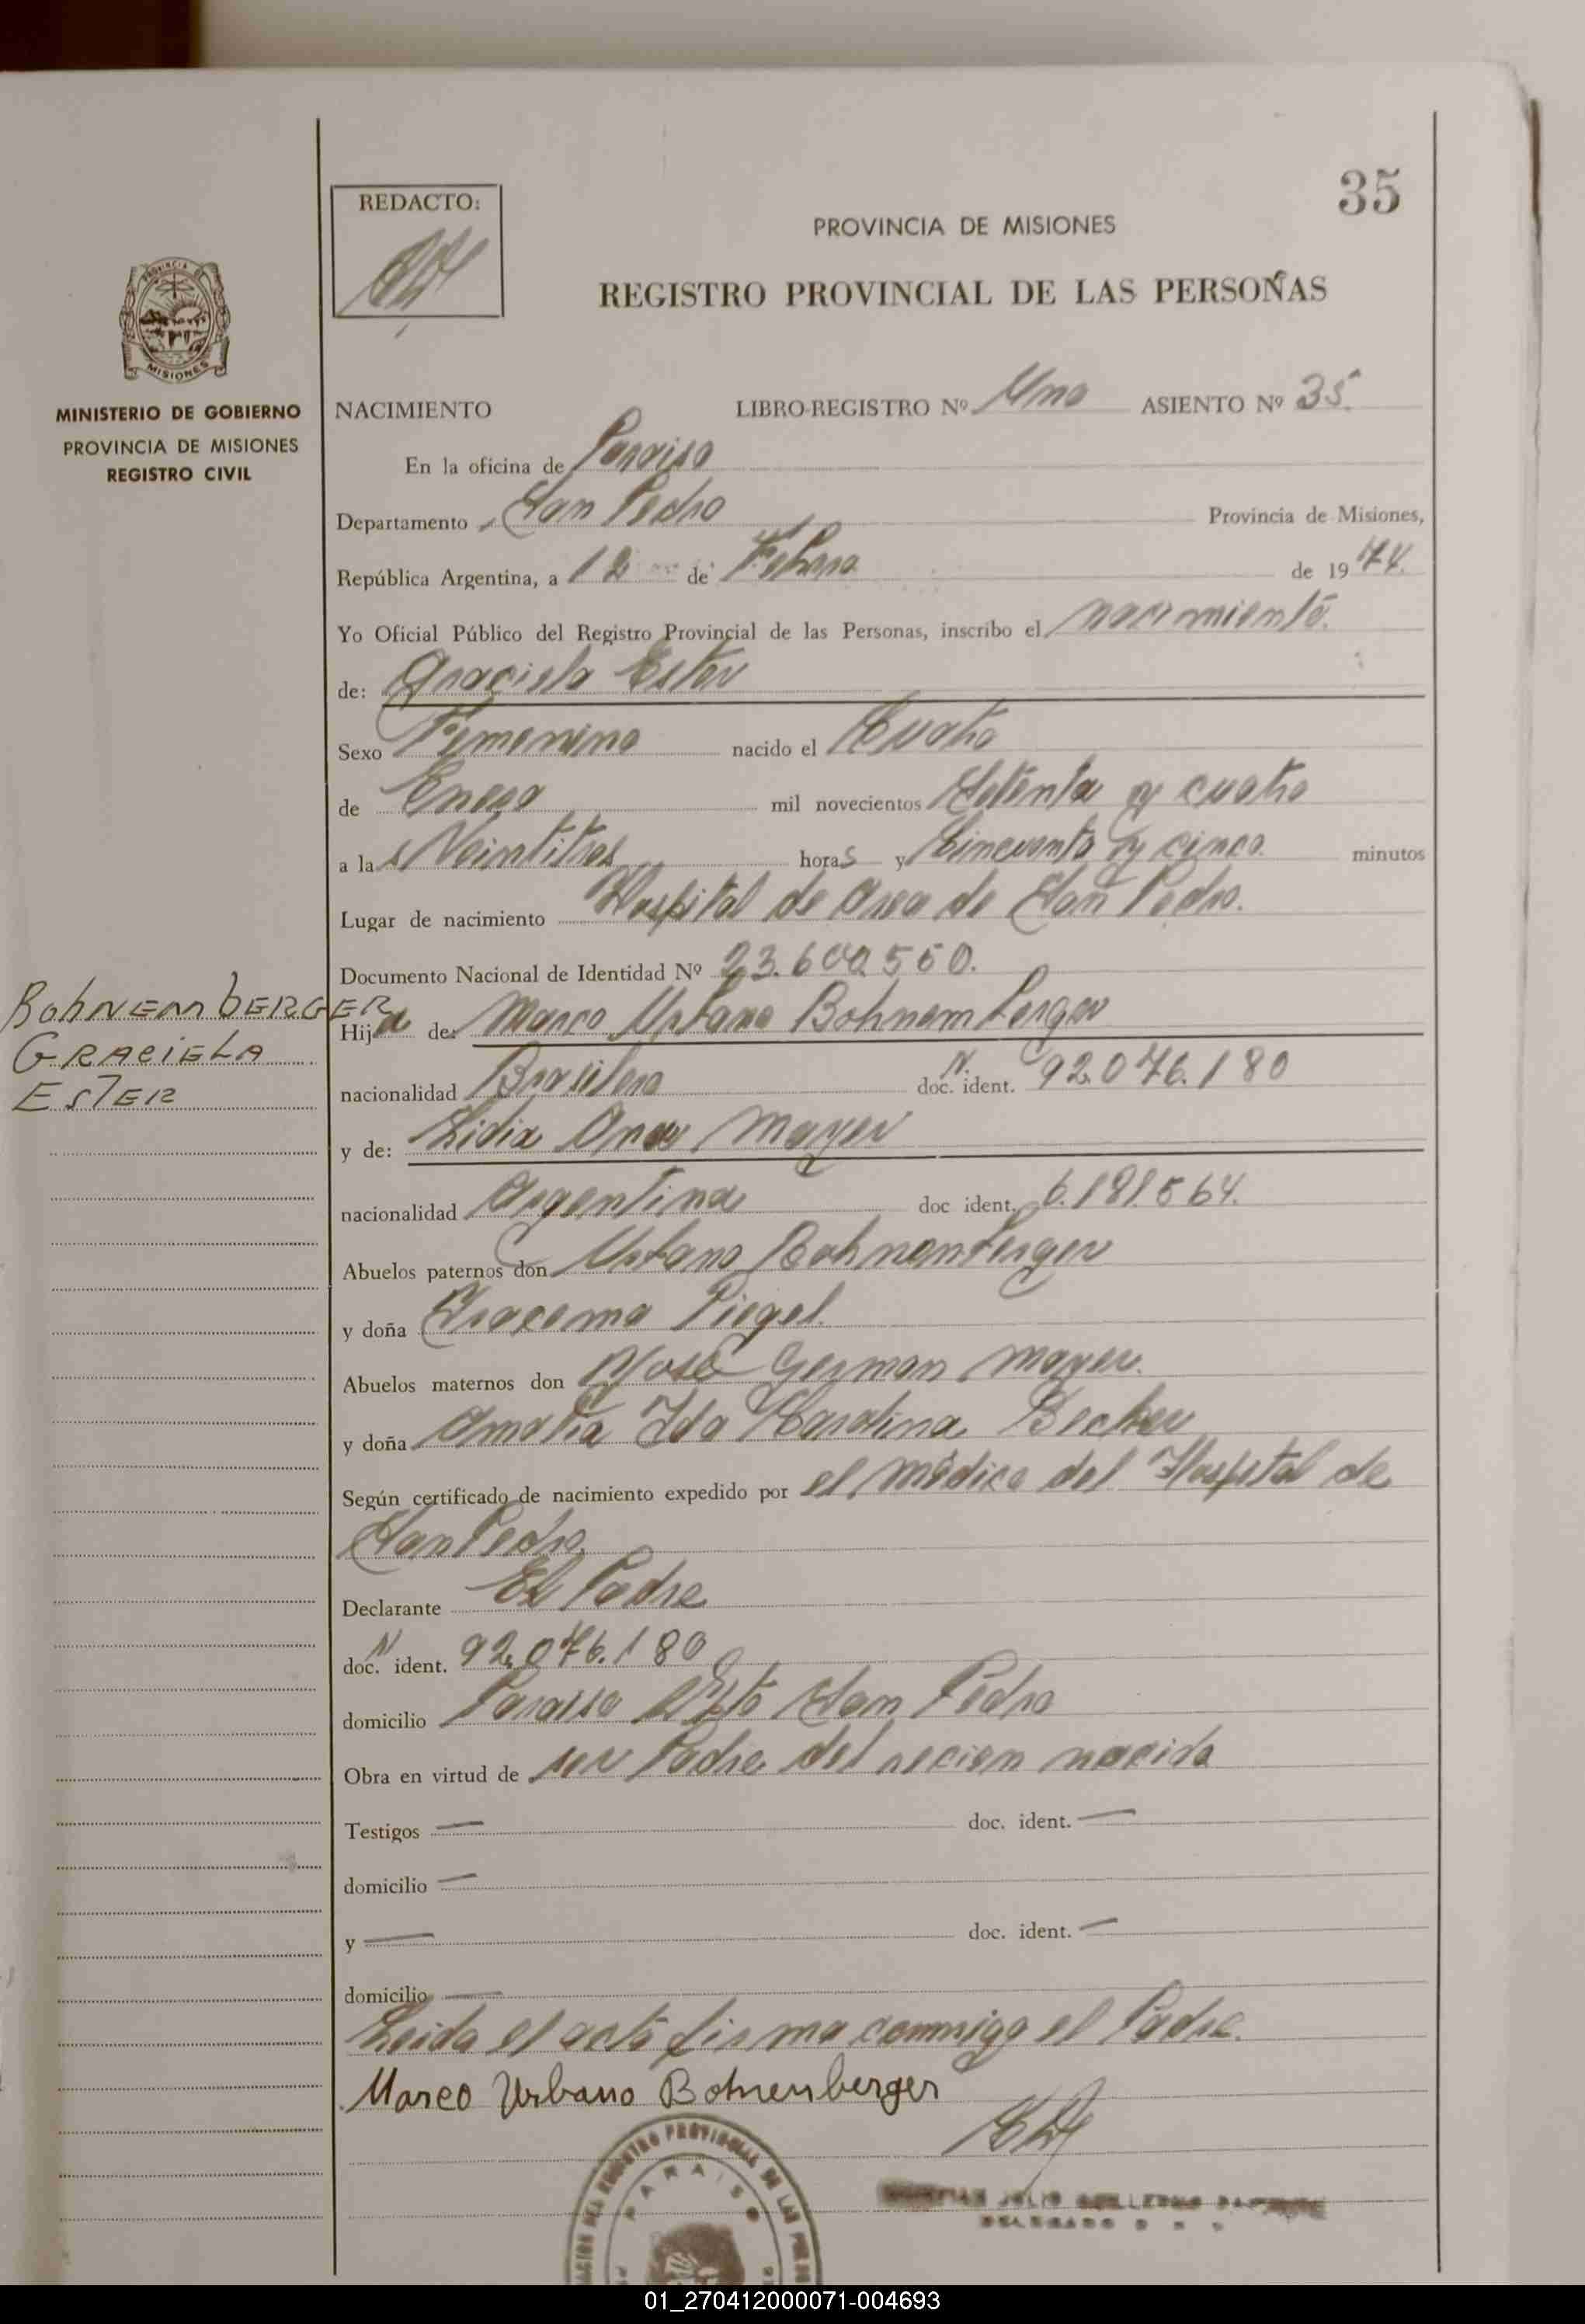 35
REDACTO:
PROVINCIA DE MISIONES
REGISTRO PROVINCIAL DE LAS PERSOÑAS
PROVINCIA DE
MISIONES
MINISTERIO DE GOBIERNO
PROVINCIA DE MISIONES
REGISTRO CIVIL
NACIMIENTO LIBRO-REGISTRO Nº Uno ASIENTO Nº 35.
En la oficina de Paraiso
Departamento San Pedro Provincia de Misiones,
República Argentina, a 12 de Febrero de 1974.
Yo Oficial Público del Registro Provincial de las Personas, inscribo el nacimiento.
de: Graciela Ester
Sexo Femenino nacido el Cuatro
de Enero mil novecientos Setenta y cuatro
a las Veintitres horas y Cincuenta y cinco. minutos
Lugar de nacimiento Hospital de Area de San Pedro.
Documento Nacional de Identidad Nº 23.600.550.
BohNEMbERGER
GRACIELA
ESTER
Hija de: Marco Urbano Bohnemberger
nacionalidad Brasilera doc. N. ident. 92.076.180
y de: Lidia Ana Mayer
nacionalidad Argentina doc ident. 6.191.564.
Abuelos paternos don Urbano Bohnenberger
y doña Iracema Piegel.
Abuelos maternos don José German Mayer.
y doña Amalia Ida Karolina Becker
Según certificado de nacimiento expedido por el médico del Hospital de
San Pedro.
Declarante El Padre
doc. N ident. 92.076.180
domicilio Paraiso Dpto San Pedro
Obra en virtud de ser Padre del recien nacida
Testigos — doc. ident. —
domicilio —
y — doc. ident. —
domicilio —
Leida el acta firma conmigo el Padre.
Marco Urbano Bohnenberger
REGISTRO PROVINCIAL DE LAS
PARAISO
JULIO GUILLERMO
DELEGADO
01_270412000071-004693